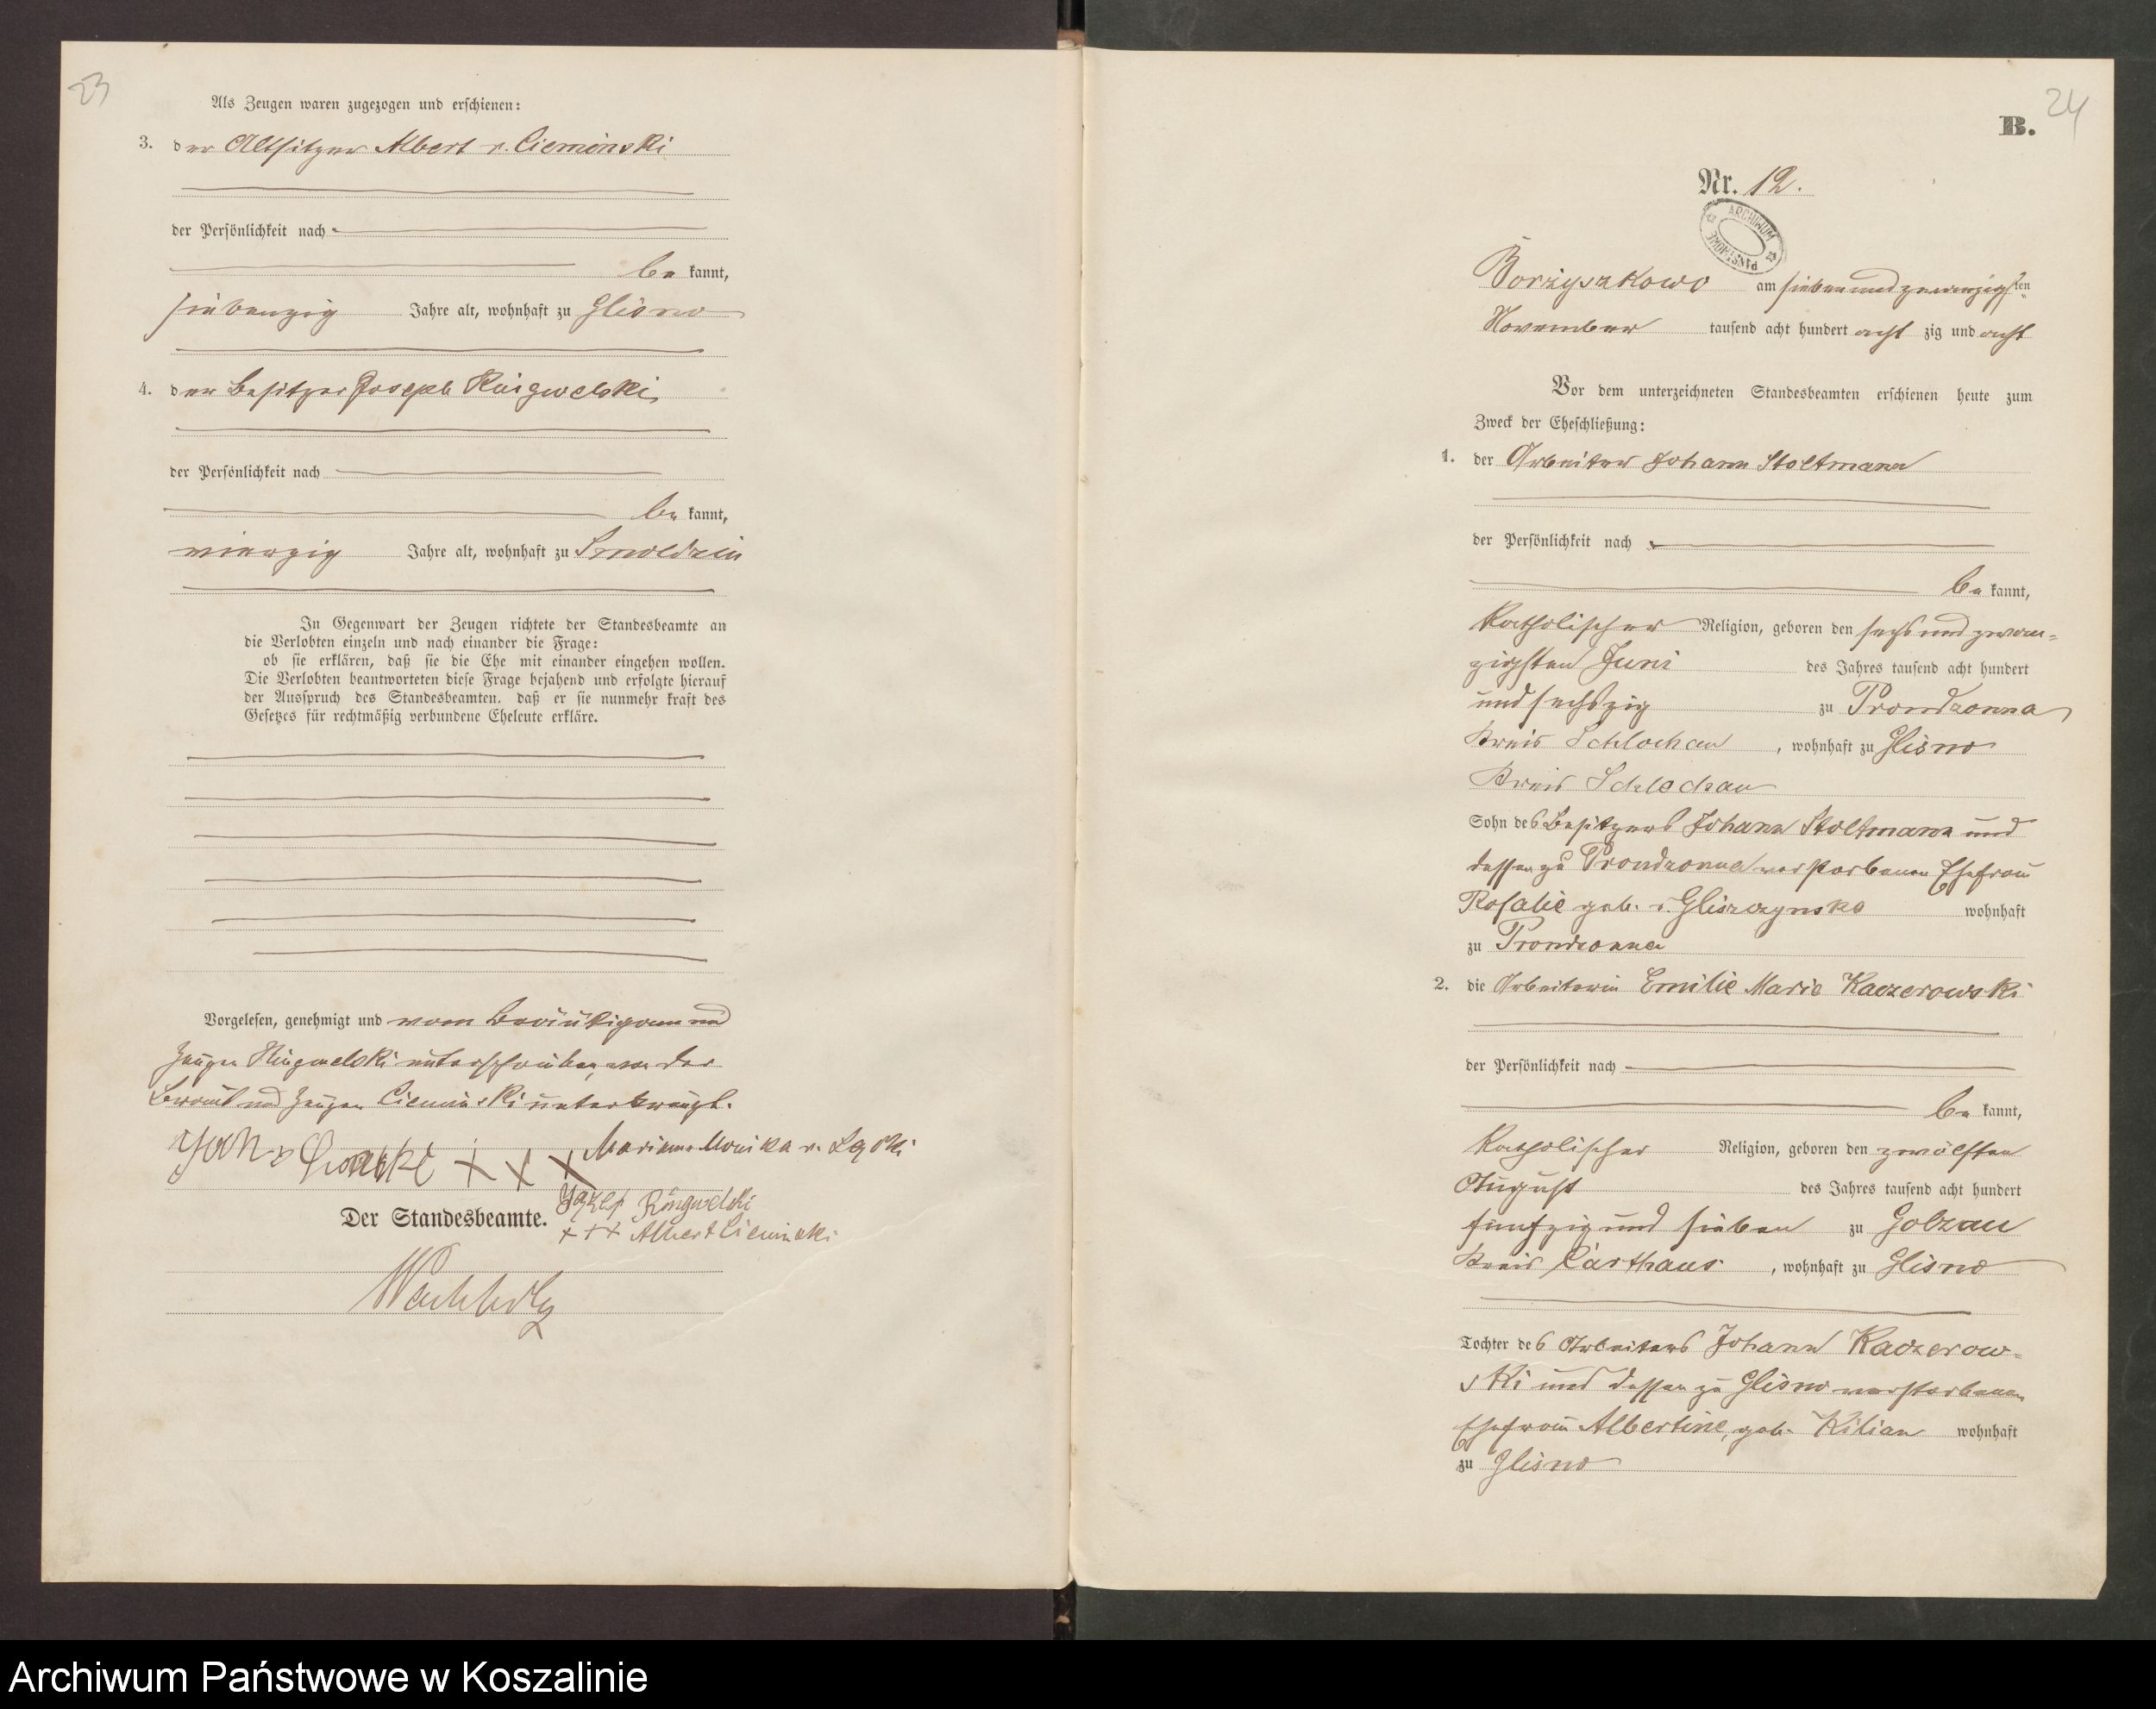 23
Als Zeugen waren zugezogen und erschienen:
3. der Altsitzer Albert v. Cieminski
der Persönlichkeit nach
be kannt,
siebenzig Jahre alt, wohnhaft zu Glisno
4. der Besitzer Joseph Ringwelski,
der Persönlichkeit nach
be kannt,
vierzig Jahre alt, wohnhaft zu
In Gegenwart der Zeugen richtete der Standesbeamte an
die Verlobten einzeln und nach einander die Frage:
ob sie erklären, daß sie die Ehe mit einander eingehen wollen.
Die Verlobten beantworteten diese Frage bejahend und erfolgte hierauf
der Ausspruch des Standesbeamten, daß er sie nunmehr kraft des
Gesetzes für rechtmäßig verbundene Eheleute erkläre.
Vorgelesen, genehmigt und vom Bräutigam und
Zeugen Ringwelski unterschrieben, von der
Braut und Zeugen Cieminski unterkreuzt.
+ + + Marianna Monika v.
Der Standesbeamte. Jozef Ringwelski
+ + + Albert Cieminski
24
B.
Nr. 12.
ARCHIWUM PAŃSTWOWE
Borzyszkowo am siebenundzwanzigsten
November tausend acht hundert acht zig und acht
Vor dem unterzeichneten Standesbeamten erschienen heute zum
Zweck der Eheschließung:
1. der Arbeiter Johann Stoltmann
der Persönlichkeit nach
be kannt,
katholischer Religion, geboren den sechsundzwan=
zigsten Juni des Jahres tausend acht hundert
und sechszig zu Prondzonna
Kreis Schlochau, wohnhaft zu Glisno
Kreis Schlochau
Sohn des Besitzers Johann Stoltmann und
dessen zu Prondzonna verstorbenen Ehefrau
Rosalie geb. v. Gliszczynski wohnhaft
zu Prondzonna
2. die Arbeiterin Emilie Marie Kaczerowski
der Persönlichkeit nach
be kannt,
katholischer Religion, geboren den zwölften
August des Jahres tausend acht hundert
fünfzig und sieben zu Golzau
Kreis Carthaus, wohnhaft zu Glisno
Tochter des Arbeiters Johann Kaczerow=
ski und dessen zu Glisno verstorbenen
Ehefrau Albertine, geb. Kilian wohnhaft
zu Glisno
Archiwum Państwowe w Koszalinie